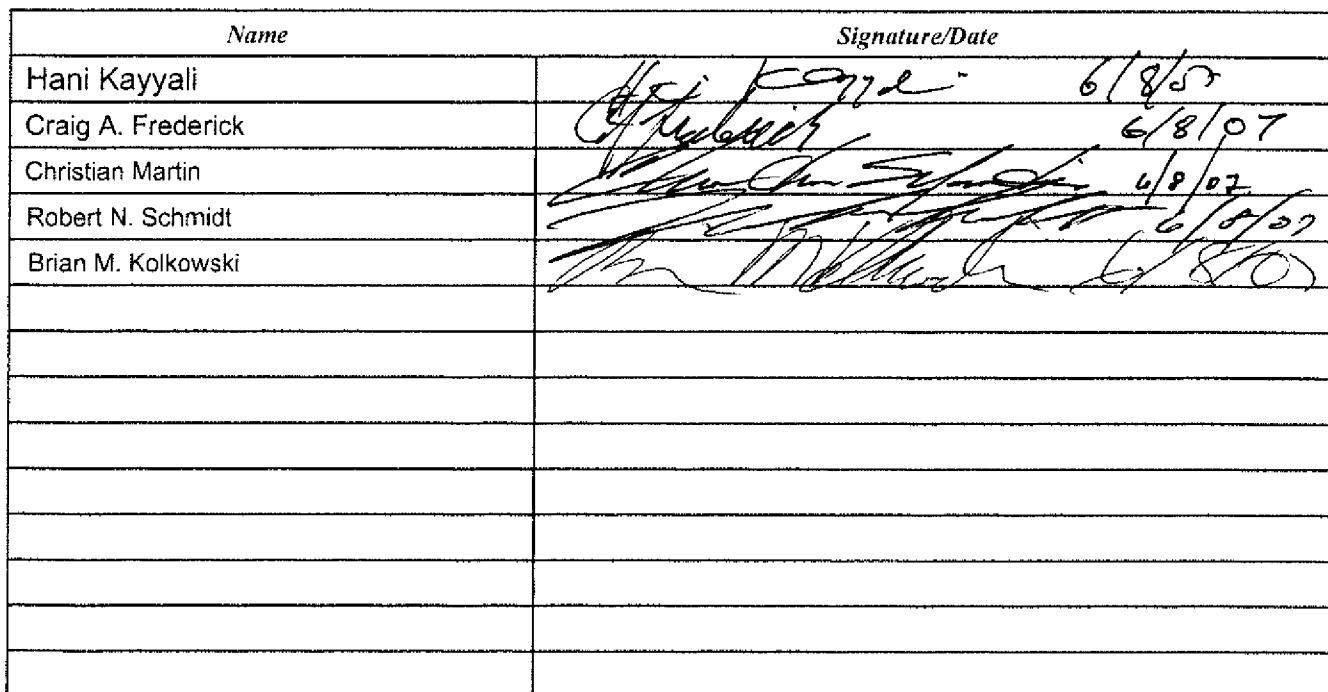 Name Signature/Date
Hani Kayyali 6/8/07
Craig A. Frederick 6/8/07
Christian Martin 6/8/07
Robert N. Schmidt 6/8/07
Brian M. Kolkowski 6/8/07